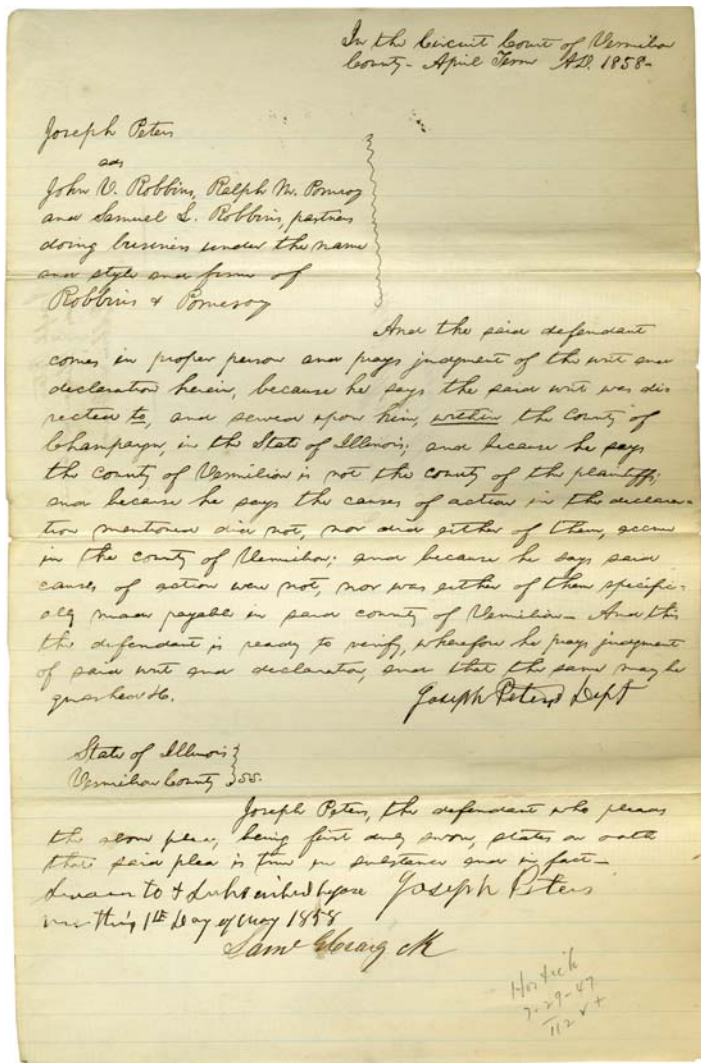 In the Circuit Court of Vermilion
County - April Term A.D. 1858 -
Joseph Peters
ads
John V. Robbins, Ralph M. Pomeroy
and Samuel L. Robbins, partners
doing business under the name
and style and firm of
Robbins & Pomeroy
And the said defendant
comes in proper person and prays judgment of the writ and
declaration herein, because he says the said writ was di
rected to, and served upon him, within the County of
Champaign, in the State of Illinois; and because he says
the county of Vermilion is not the county of the plaintiffs;
and because he says the causes of action in the declara-
tion mentioned did not, nor did either of them, accrue
in the county of Vermilion; and because he says said
causes of action were not, nor was either of them specific-
ally made payable in said county of Vermilion - And this
the defendant is ready to verify, wherefore he prays judgment
of said writ and declaration, and that the same may be
quashed &c.
Joseph Peters Deft
State of Illinois
Vermilion County } ss.
Joseph Peters, the defendant who pleads
the above plea, being first duly sworn, states on oath
that said plea is true in substance and in fact -
Sworn to & Subscribed before Joseph Peters
me this 1st Day of May 1858
Saml Craig Clk
Hostick
7-29-47